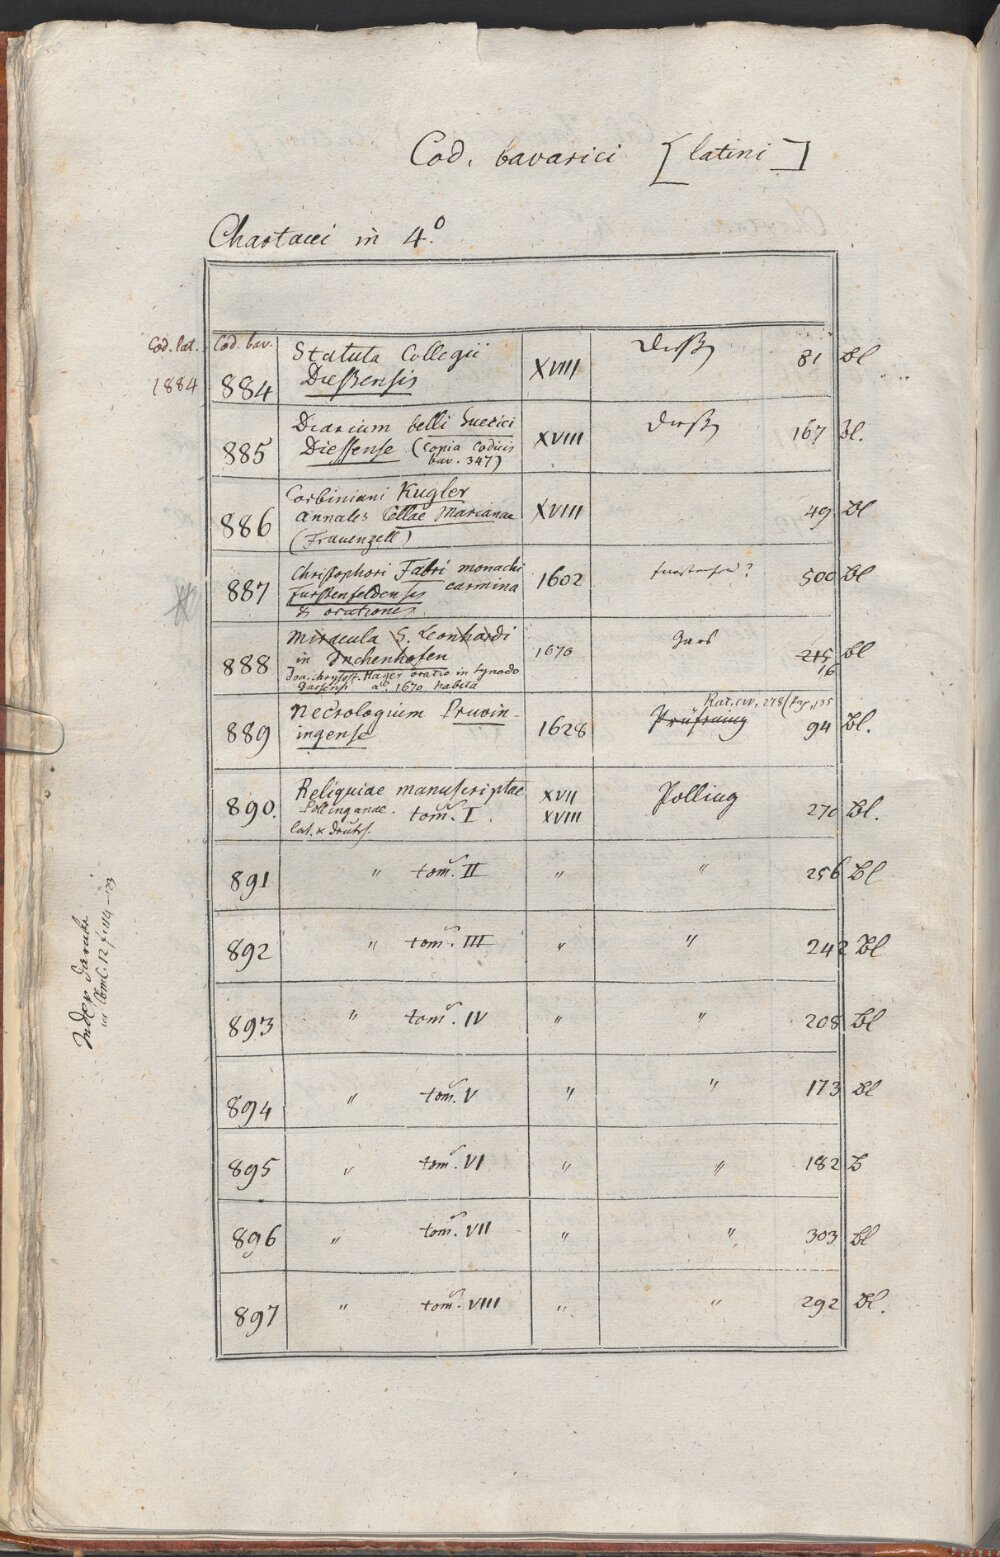 Cod. bavarici [latini]
Chartacei in 4.º
Cod. lat. Cod. bav.
1884 884 Statuta Collegii XVIII Dieß 81 Bl
Dießensis
885 Diarium belli Suecici XVIII Dieß 167 Bl.
Diessense (Copia Codicis
bav. 347)
886 Corbiniani Kugler XVIII 49 Bl
annales Cellae Marianae
(Frauenzell)
887 Christophori Fabri monachi 1602 500 Bl
furstenfeldensis carmina
& orationes
888 Miracula S. Leonhardi 1670 Gars 215 Bl
in Inchenhofen 16
Joa. Chrysost. Hager oratio in synodo
Garsensi aº. 1670 habita
889 Necrologium Pruvin- 1628 Prüfning 94 Bl.
ingense
890. Reliquiae manuscriptae XVII Polling 270 Bl.
Pollinganae. tom. I. XVIII
lat. & deutsch.
891 " tom. II " " 256 Bl
892 " tom. III " " 242 Bl
893 " tom. IV " " 208 Bl
894 " tom. V " " 173 Bl
895 " tom. VI " " 182 B
896 " tom. VII " " 303 Bl
897 " tom. VIII " " 292 Bl.